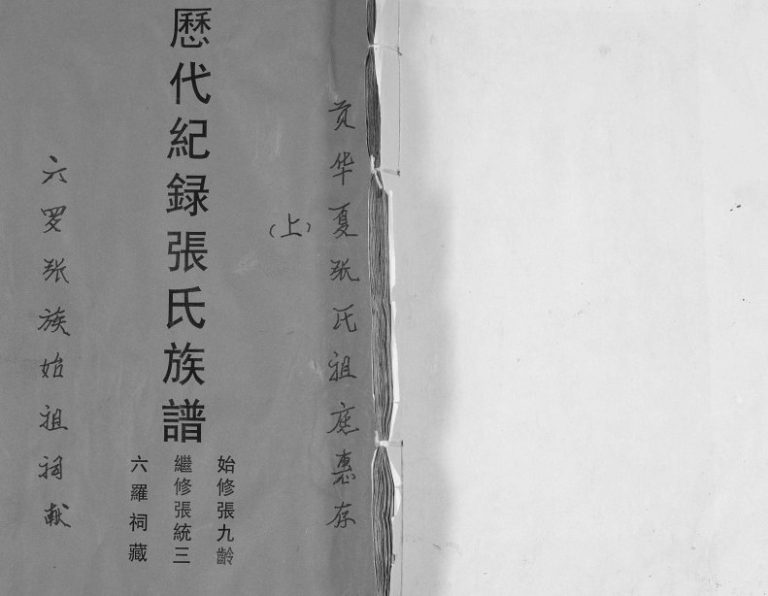 贡华夏张氏祖庭惠存
（上）
歷代紀録張氏族譜
始修張九齡
繼修張統三
六羅祠藏
六罗张族始祖祠献